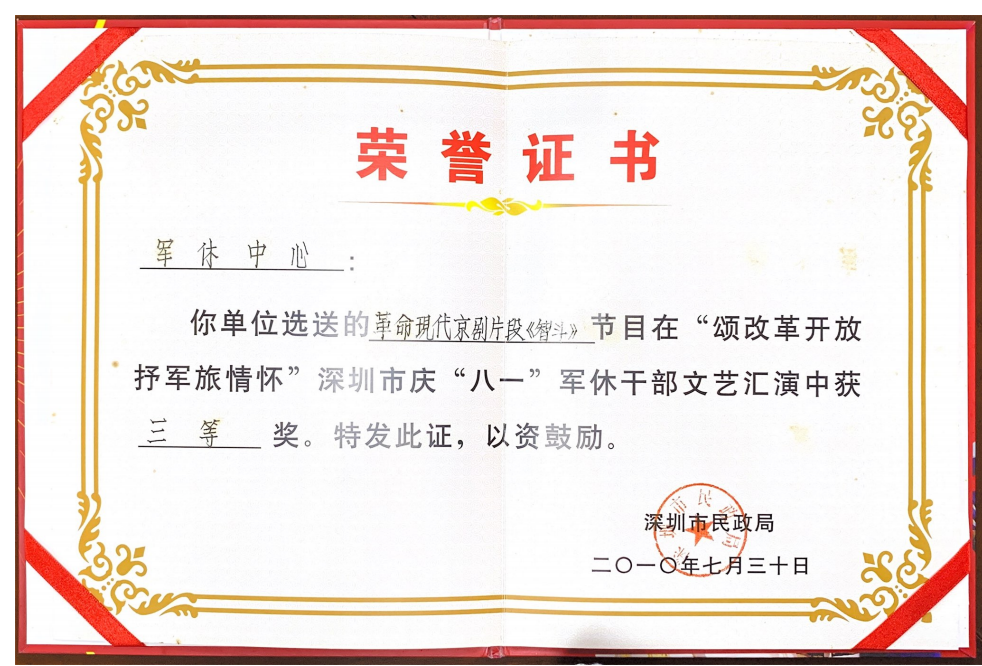 荣誉证书
军休中心：
你单位选送的革命現代京剧片段《智斗》节目在“颂改革开放
抒军旅情怀”深圳市庆“八一”军休干部文艺汇演中获
三等奖。特发此证，以资鼓励。
深圳市民政局
深圳市民政局
二〇一〇年七月三十日